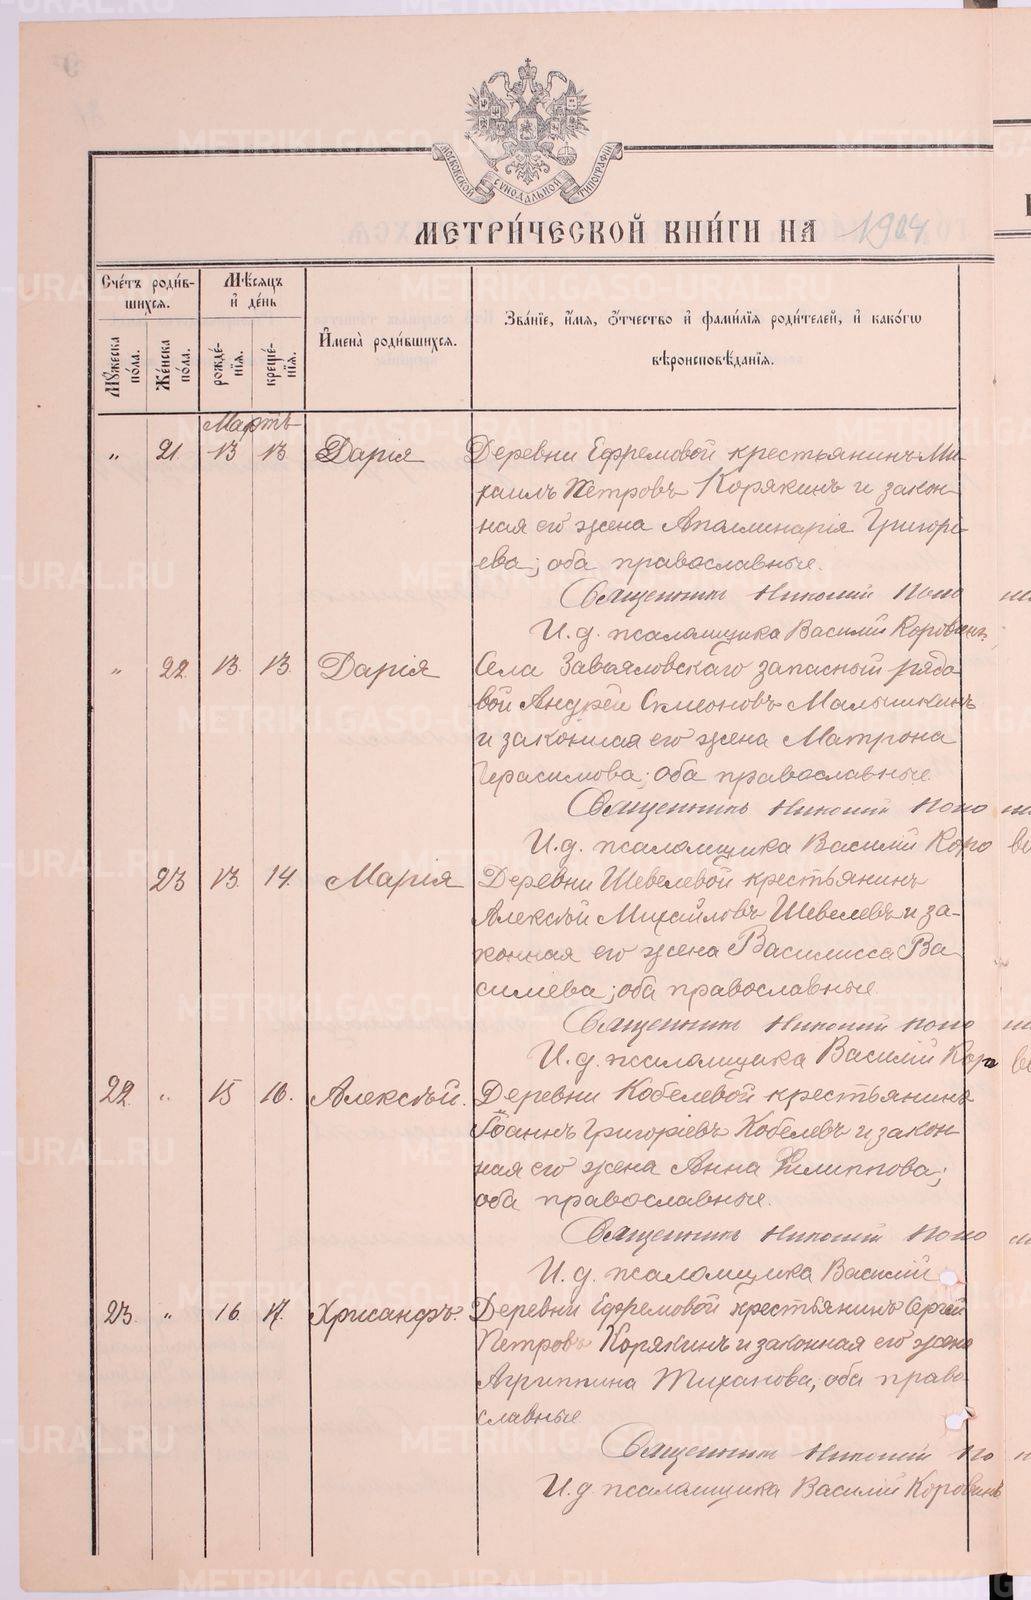 МОСКОВСКОЙ СѴНОДАЛЬНОЙ ТИПОГРАФІИ
МЕТРИ́ЧЕСКОЙ КНИ́ГИ НА 1904
Сче́тъ роди́в-
шихся.
Мѣ́сяцъ
и҆ де́нь
И҆мена̀ роди́вшихся.
Зва́нїе, и҆́мя, ѻ҆́тчество и҆ фами́лїя роди́телей, и҆ како́гѡ
вѣроисповѣ́данїя.
Мꙋ́жеска по́ла.
Же́нска по́ла.
рожде́-нїя.
креще́-нїя.
Мартъ
" 21 13 13 Дарія Деревни Ефремовой крестьянинъ Ми-
хаилъ Петровъ Корякинъ и закон-
ная его жена Апалинарія Григорі-
ева; оба православные.
Священникъ Николай Попо
И.д. псаломщика Василій Коровинъ
" 22 13. 13. Дарія Села Завьяловскаго запасный рядо-
вой Андрей Симеоновъ Малышкинъ
и законная его жена Матрона
Герасимова; оба православные
Священникъ Николай Попо
И.д. псаломщика Василій Коро
23 13. 14. Марія Деревни Шевелевой крестьянинъ
Алексѣй Михайловъ Шевелевъ и за-
конная его жена Василисса Ва-
силиева; оба православные
Священникъ Николай Попо
И.д. псаломщика Василій Коро
22. " 15 16. Алексѣй. Деревни Кобелевой крестьянинъ
Іоаннъ Григоріевъ Кобелевъ и закон-
ная его жена Анна Филиппова;
оба православные.
Священникъ Николай Попо
И.д. псаломщика Василій
23. " 16. 17. Хрисанфъ. Деревни Ефремовой крестьянинъ Сергей
Петровъ Корякинъ и законная его жена
Агриппина Тиханова, оба право-
славные
Священникъ Николай По
И.д. псаломщика Василій Коровинъ
METRIKI.GASO-URAL.RU